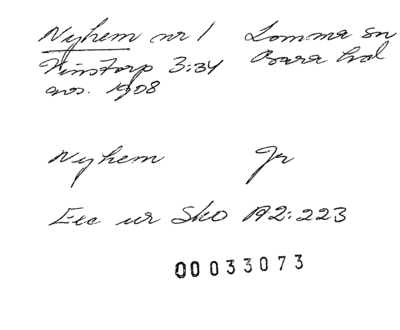 Nyhem nr 1 Lomma sn
Vinstorp 3:34 Bara hd
avs. 1908
Nyhem Jr
Exc ur Sko A2:223
00033073